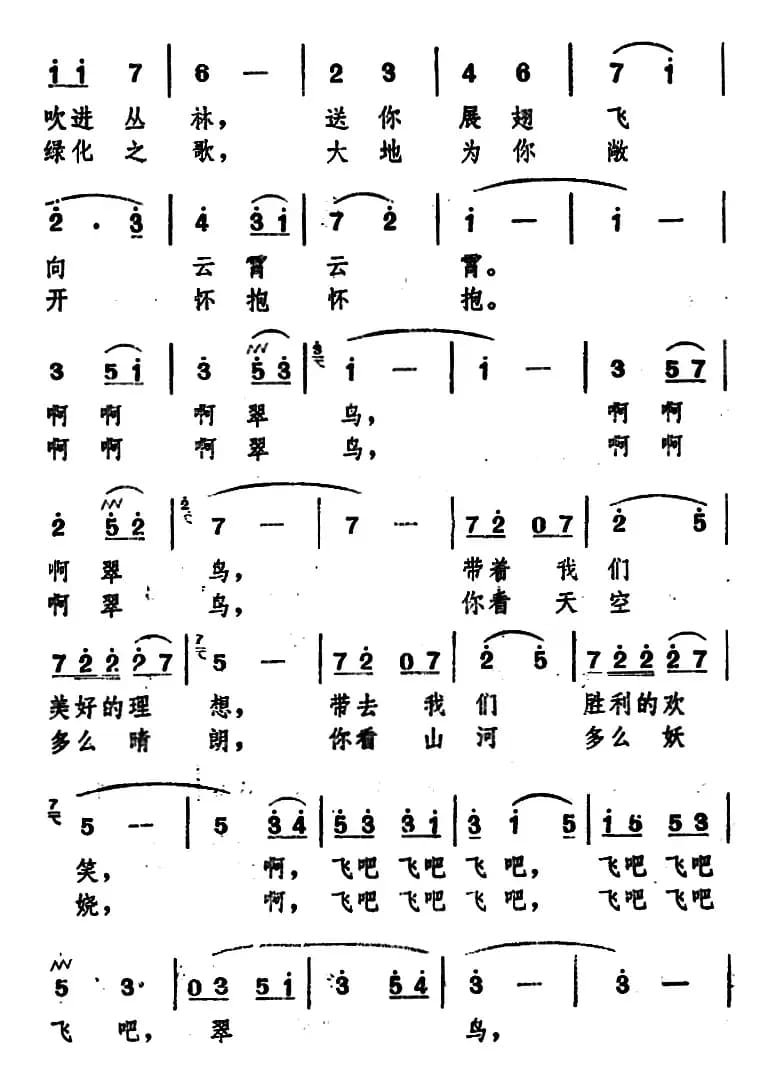 i i 7 | 6 — | 2 3 | 4 6 | 7 i |
吹进 丛 林， 送 你 展 翅 飞
绿化 之 歌， 大 地 为 你 敞
2 . 3 | 4 3 i | 7 2 | i — | i — |
向 云 霄 云 霄。
开 怀 抱 怀 抱。
3 5 i | 3 5 3 | 3 i — | i — | 3 5 7 |
啊 啊 啊 翠 鸟， 啊 啊
啊 啊 啊 翠 鸟， 啊 啊
2 5 2 | 2 7 — | 7 — | 7 2 0 7 | 2 5 |
啊 翠 鸟， 带着 我 们
啊 翠 鸟， 你看 天 空
7 2 2 2 7 | 7 5 — | 7 2 0 7 | 2 5 | 7 2 2 2 7 |
美好的理 想， 带去 我 们 胜利的欢
多么 晴 朗， 你看 山 河 多么 妖
7 5 — | 5 3 4 | 5 3 3 i | 3 i 5 | i 6 5 3 |
笑， 啊， 飞吧 飞吧 飞 吧， 飞吧 飞吧
娆， 啊， 飞吧 飞吧 飞 吧， 飞吧 飞吧
5 3 . | 0 3 5 i | 3 5 4 | 3 — | 3 — |
飞 吧， 翠 鸟，